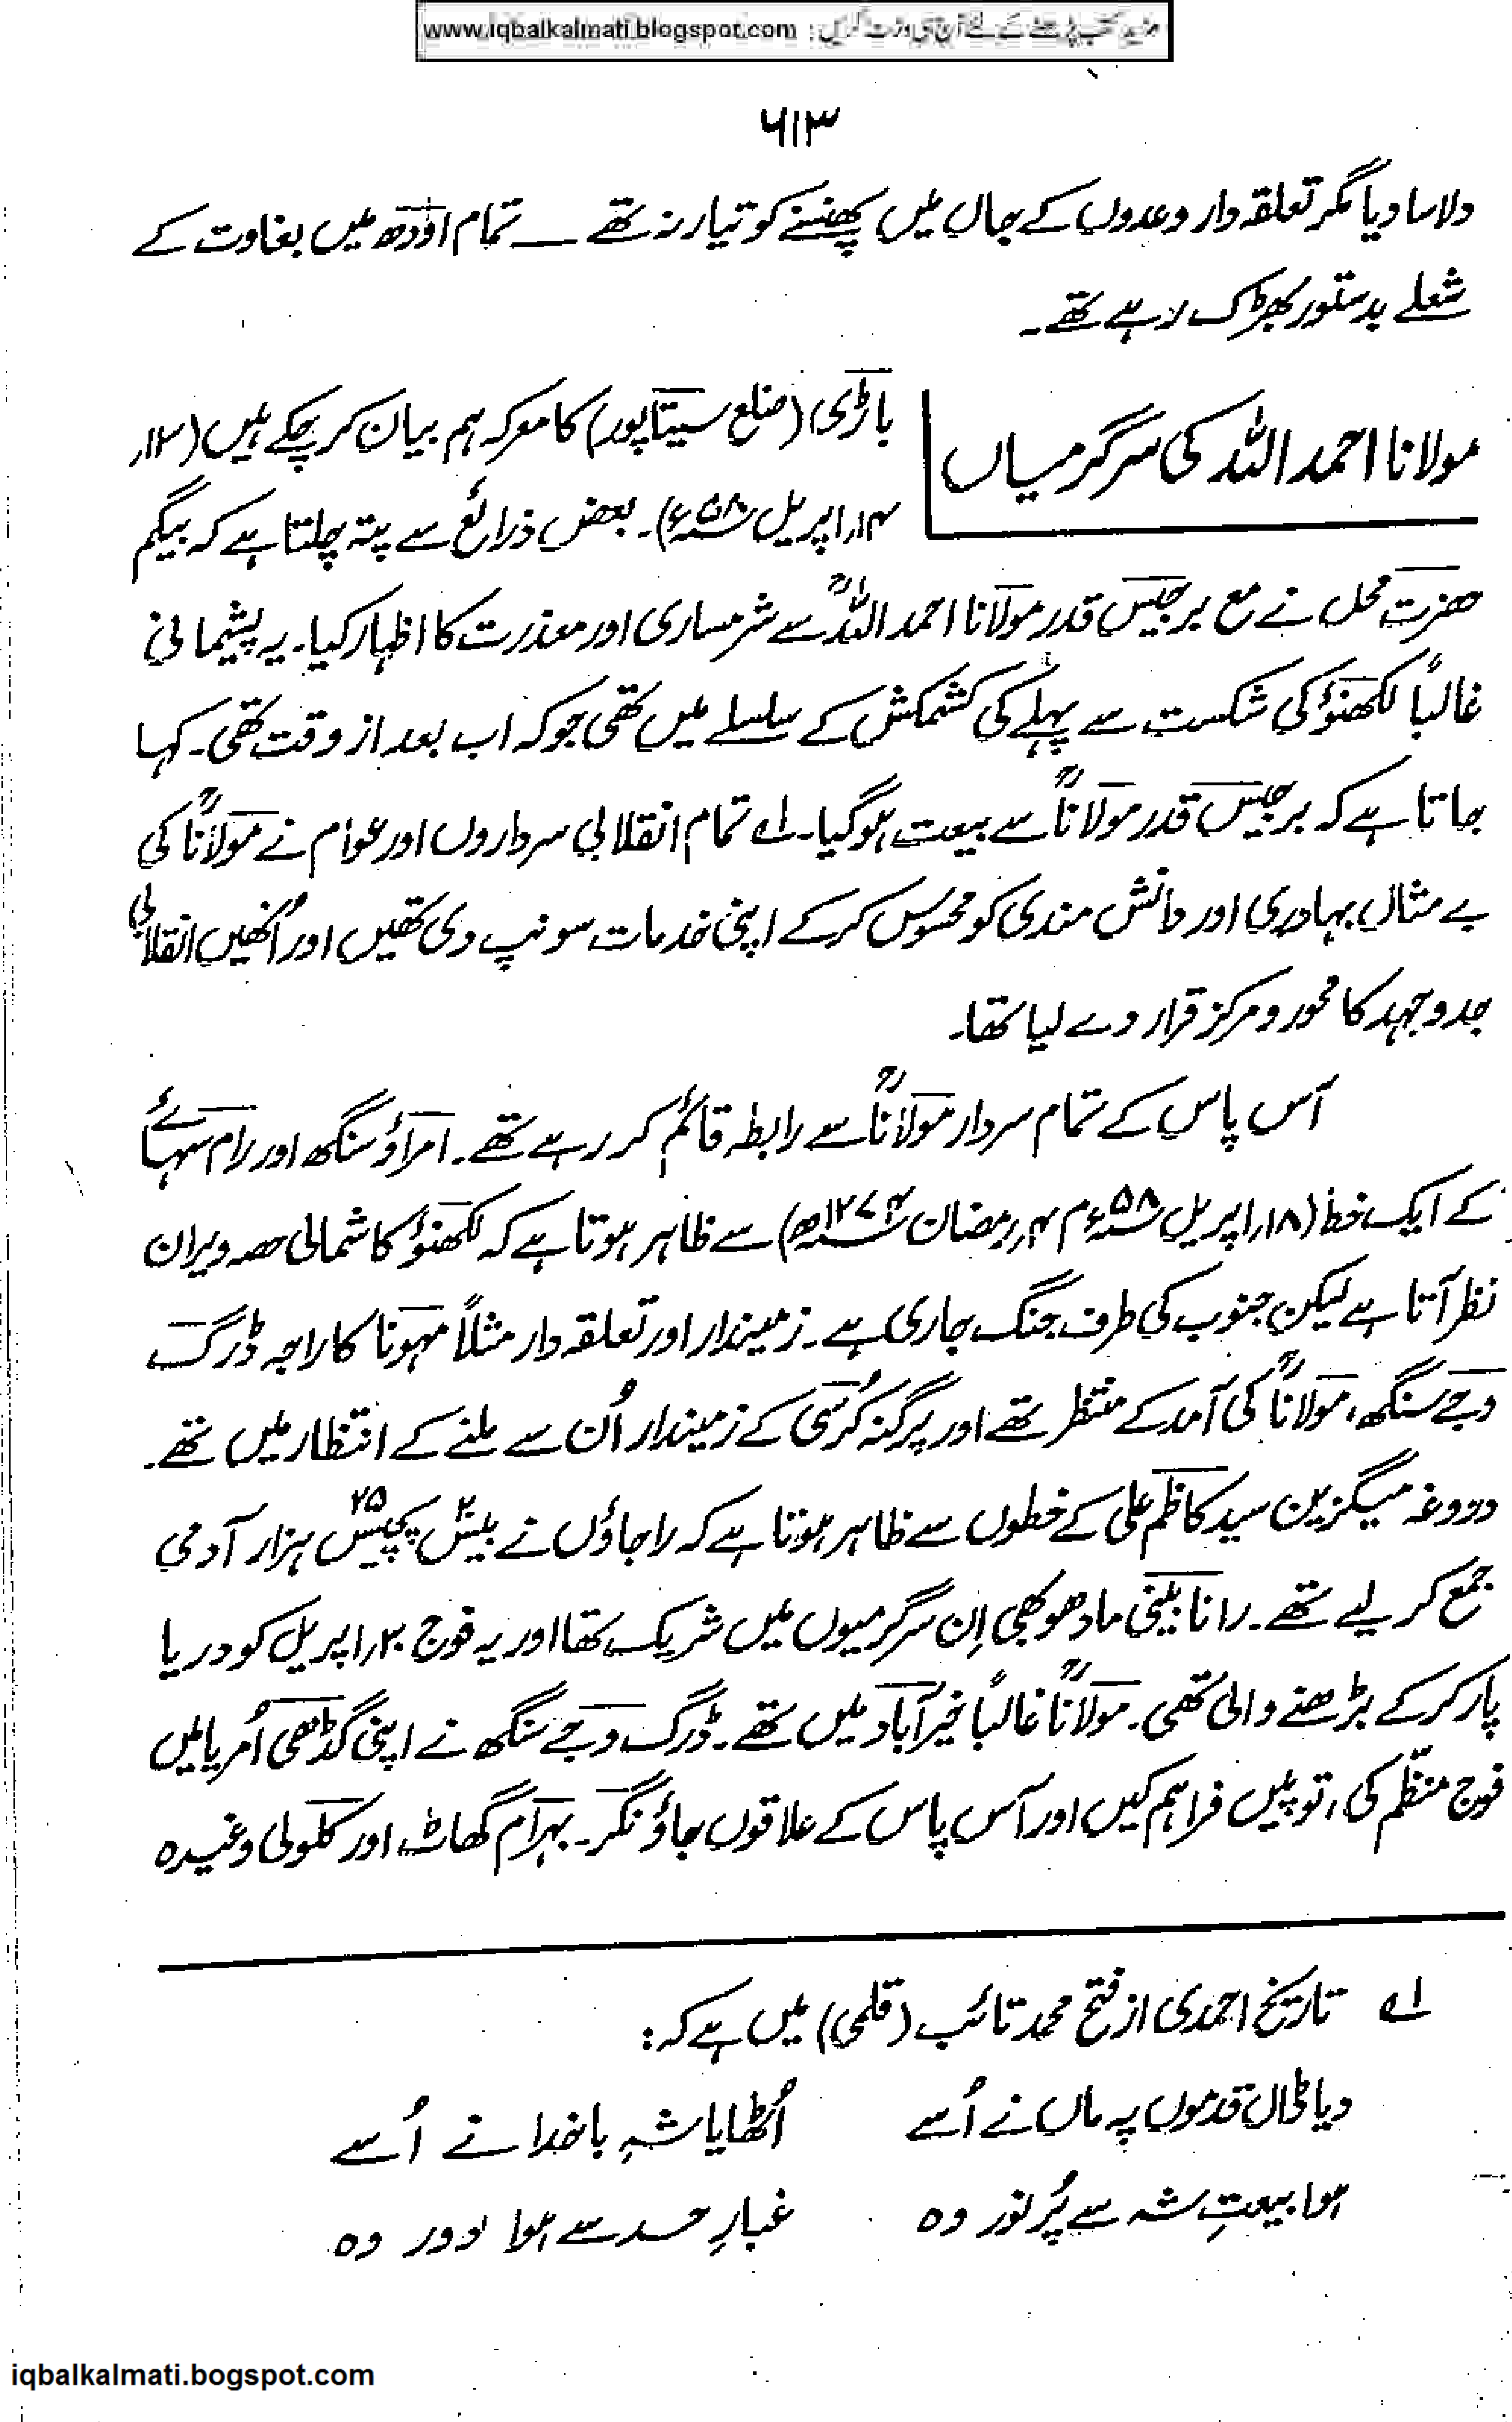 www.iqbalkalmati.blogspot.com : مزید کتب پڑھنے کے لئے آج ہی وزٹ کریں
۶۱۳
دلاسا دیا مگر تعلقہ دار وعدوں کے جال میں پھنسنے کو تیار نہ تھے ــــ تمام اودھ میں بغاوت کے
شعلے بدستور بھڑک رہے تھے۔
مولانا احمد اللہ کی سرگرمیاں
باڑی (ضلع سیتاپور) کا معرکہ ہم بیان کر چکے ہیں (۱۳ر
۱۴ر اپریل ۵۸ء)۔ بعض ذرائع سے پتہ چلتا ہے کہ بیگم
حضرت محل نے مع برجیس قدر مولانا احمد اللہؒ سے شرمساری اور معذرت کا اظہار کیا۔ یہ پشیمانی
غالباً لکھنؤ کی شکست سے پہلے کی کشمکش کے سلسلے میں تھی جو کہ اب بعد از وقت تھی۔ کہا
جاتا ہے کہ برجیس قدر مولاناؒ سے بیعت ہوگیا۔ ۱؎ تمام انقلابی سرداروں اور عوام نے مولاناؒ کی
بے مثال بہادری اور دانش مندی کو محسوس کرکے اپنی خدمات سونپ دی تھیں اور اُنھیں انقلابی
جدوجہد کا محور و مرکز قرار دے لیا تھا۔
آس پاس کے تمام سردار مولاناؒ سے رابطہ قائم کر رہے تھے۔ امراؤ سنگھ اور رام سہائے
کے ایک خط (۱۸ر اپریل ۵۸ء م ۴ر رمضان ۱۲۷۴ھ) سے ظاہر ہوتا ہے کہ لکھنؤ کا شمالی حصہ ویران
نظر آتا ہے لیکن جنوب کی طرف جنگ جاری ہے۔ زمیندار اور تعلقہ دار مثلاً مہونا کا راجہ ڈرگ
وجے سنگھ، مولاناؒ کی آمد کے منتظر تھے اور پرگنہ کُرسی کے زمیندار اُن سے ملنے کے انتظار میں تھے۔
دروغہ میگزین سید کاظم علی کے خطوں سے ظاہر ہوتا ہے کہ راجاؤں نے بیس۲۰ پچیس۲۵ ہزار آدمی
جمع کر لیے تھے۔ رانا بینی مادھو بھی اِن سرگرمیوں میں شریک تھا اور یہ فوج ۲۰ر اپریل کو دریا
پار کرکے بڑھنے والی تھی۔ مولاناؒ غالباً خیرآباد میں تھے۔ ڈرگ وجے سنگھ نے اپنی گڈھی اُمریا میں
فوج منظّم کی، توپیں فراہم کیں اور آس پاس کے علاقوں جاؤنگر۔ بہرام گھاٹ اور کلولی وغیرہ
۱؎ تاریخ احمدی از فتح محمد تائب (قلمی) میں ہے کہ:
دیا ڈال قدموں پہ ماں نے اُسے اُٹھایا شہِ باخدا نے اُسے
ہوا بیعتِ شہ سے پُر نور وہ غبارِ حسد سے ہوا دور وہ
iqbalkalmati.bogspot.com